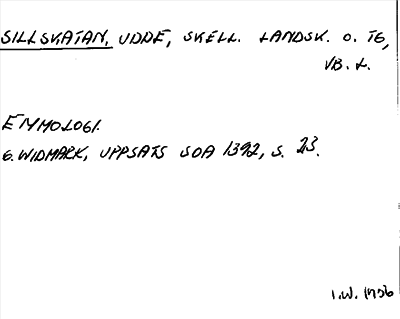 SILLSKATAN, UDDE, SKELL. LANDSK. O. TG,
VB. L.
ETYMOLOGI.
G. WIDMARK, UPPSATS SOA 1392, S. 23.
I.W. 1956